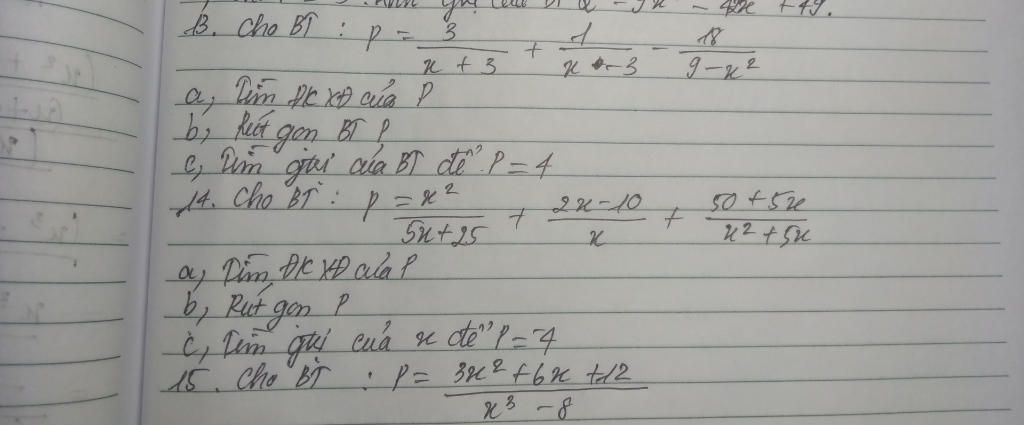 13. Cho BT : P = 3/(x + 3) + 1/(x - 3) - 18/(9 - x²)
a, Tìm ĐKXĐ của P
b, Rút gọn BT P
c, Tìm gtrị của BT để P = 4
14. Cho BT : P = x²/(5x + 25) + (2x - 10)/x + (50 + 5x)/(x² + 5x)
a, Tìm ĐKXĐ của P
b, Rút gọn P
c, Tìm gtrị của x để P = -4
15. Cho BT : P = (3x² + 6x + 12)/(x³ - 8)